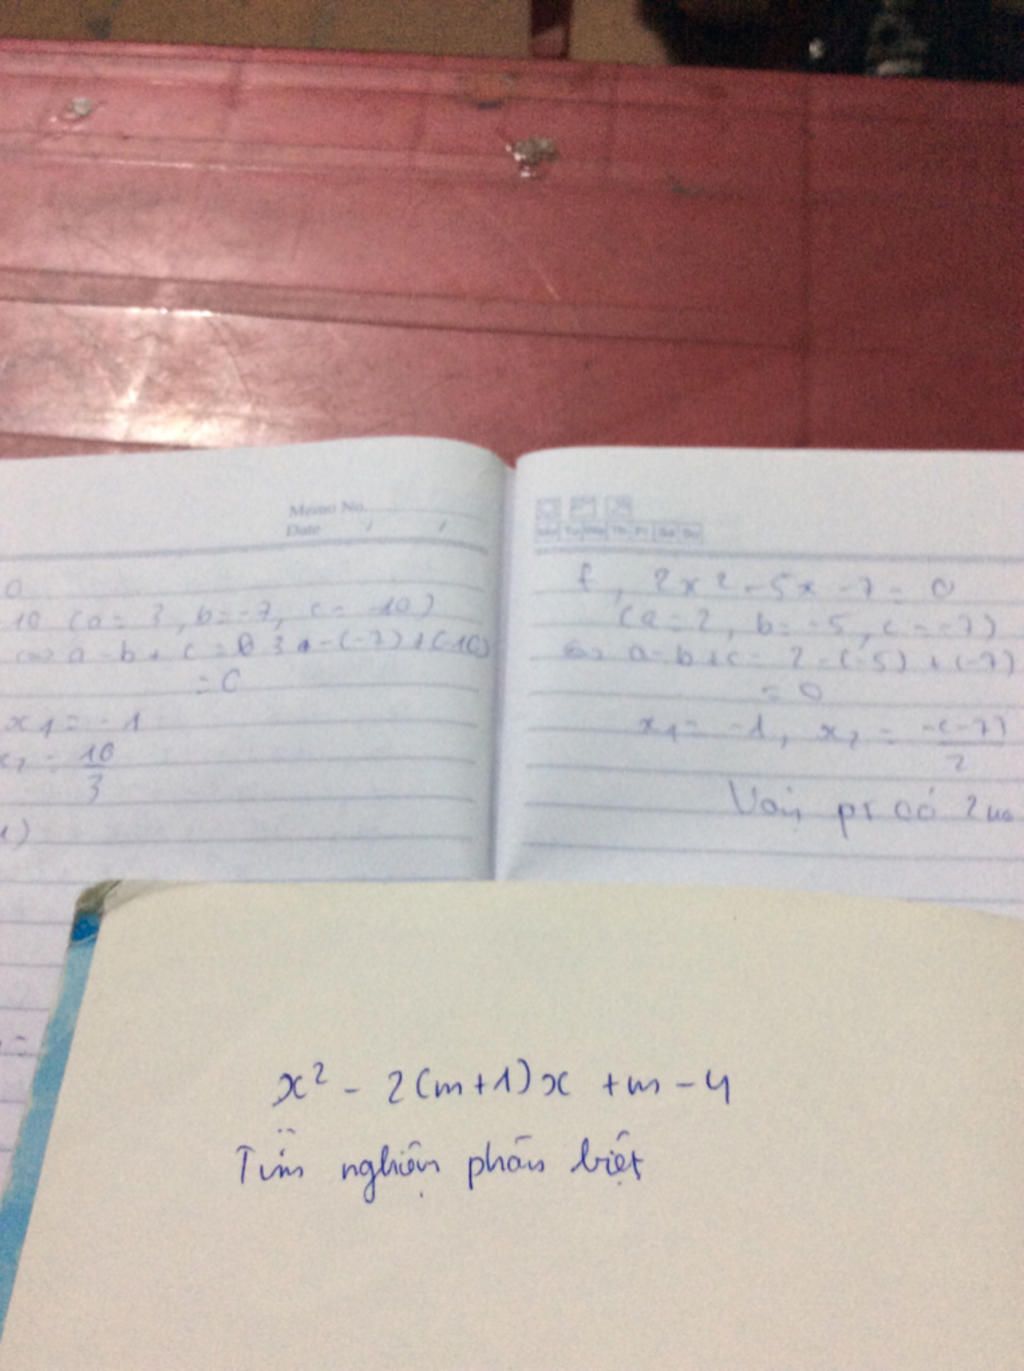 Memo No.
Date / /
0
10 (a = 3, b = -7, c = -10)
⇔ a - b + c = 3 - (-7) + (-10)
= 0
x₁ = -1
x₂ = 10/3
f, 2x² - 5x - 7 = 0
(a = 2, b = -5, c = -7)
⇔ a - b + c = 2 - (-5) + (-7)
= 0
x₁ = -1, x₂ = -(-7)/2
Vậy pt có 2
x² - 2(m+1)x + m - 4
Tìm nghiệm phân biệt